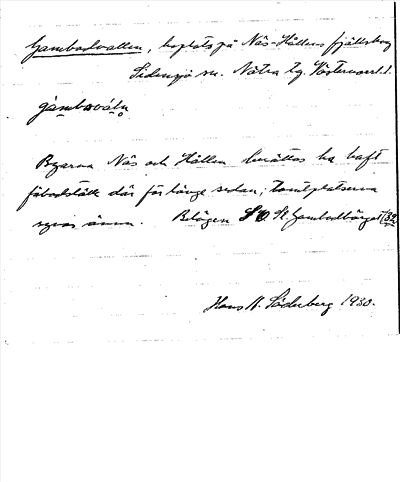 Gambodvallen, boplats på Näs-Hållens fjällskog
Sidensjö sn. Nätra tg. Västernorrl. l.
Byarna Näs och Hållen berättas ha haft
fäbodställe där för länge sedan; tomtplatserna
synas ännu. Belägen S O St. Gambodbärget
Hans N. Söderberg 1930.